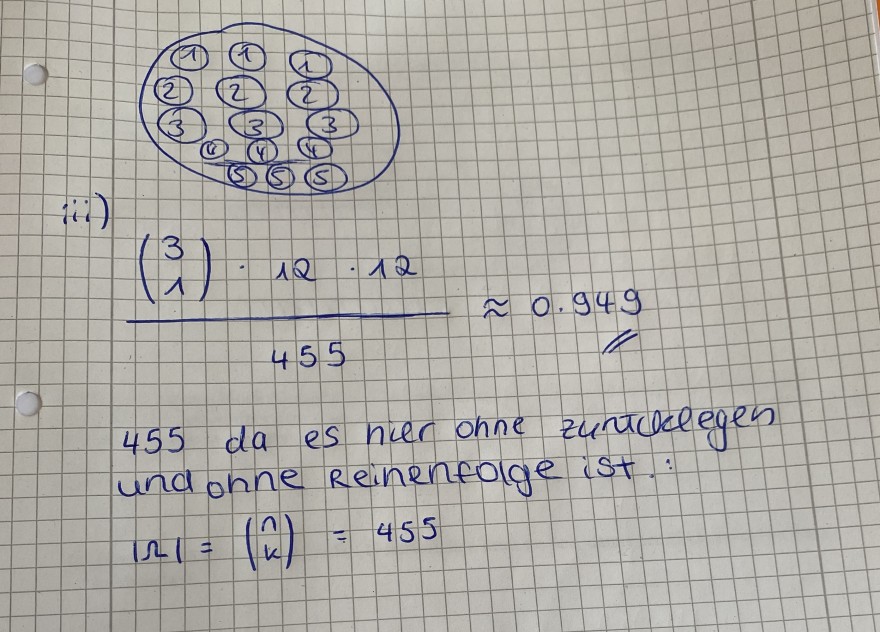 1 1 1
2 2 2
3 3 3
4 4 4
5 5 5
iii)
(3 1) · 12 · 12 / 455 ≈ 0.949
455 da es hier ohne zurücklegen
und ohne Reihenfolge ist.:
|Ω| = (n k) = 455